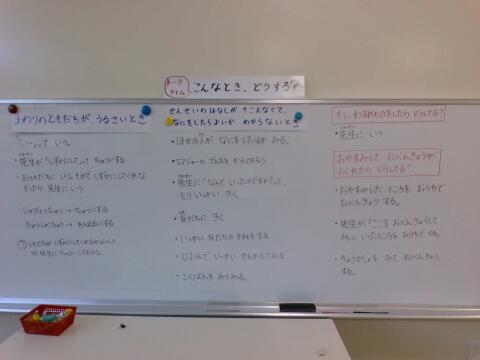 トークタイム
こんなとき、どうする?
まわりのともだちが、うるさいとき
・「しーっ」って いう。
・先生が「しずかにして。」って ちゅういする
・おともだちに いう。それで しずかにしてくれな
かったら、先生に いう
・じゅぎょうちゅう→ ちゅういする
きゅうしょくちゅう→ そのままいする
先生に ちゅういしてもらう。
せんせいの はなしが きこえなくて、
なにをしたらよいか わからないとき
・ほかの人が なにをしているか みる。
・先生に「なんて いったのですか?」と、
もう いっかい きく
・友だちに きく
・いっかい 友だちの まねをする
・じぶんで いっかい かんがえてみる
・こくばんを みてみる。
もし、わすれものをしたら どうしてる?
・先生に いう
おやすみして おべんきょうが
おくれたら どうしてる?
・おやすみした ところを、おうちで
おべんきょう する。
・先生が「ここを おべんきょうして
いったところを おうちで やる。
・きょうかしょを みて おべんきょう
する。